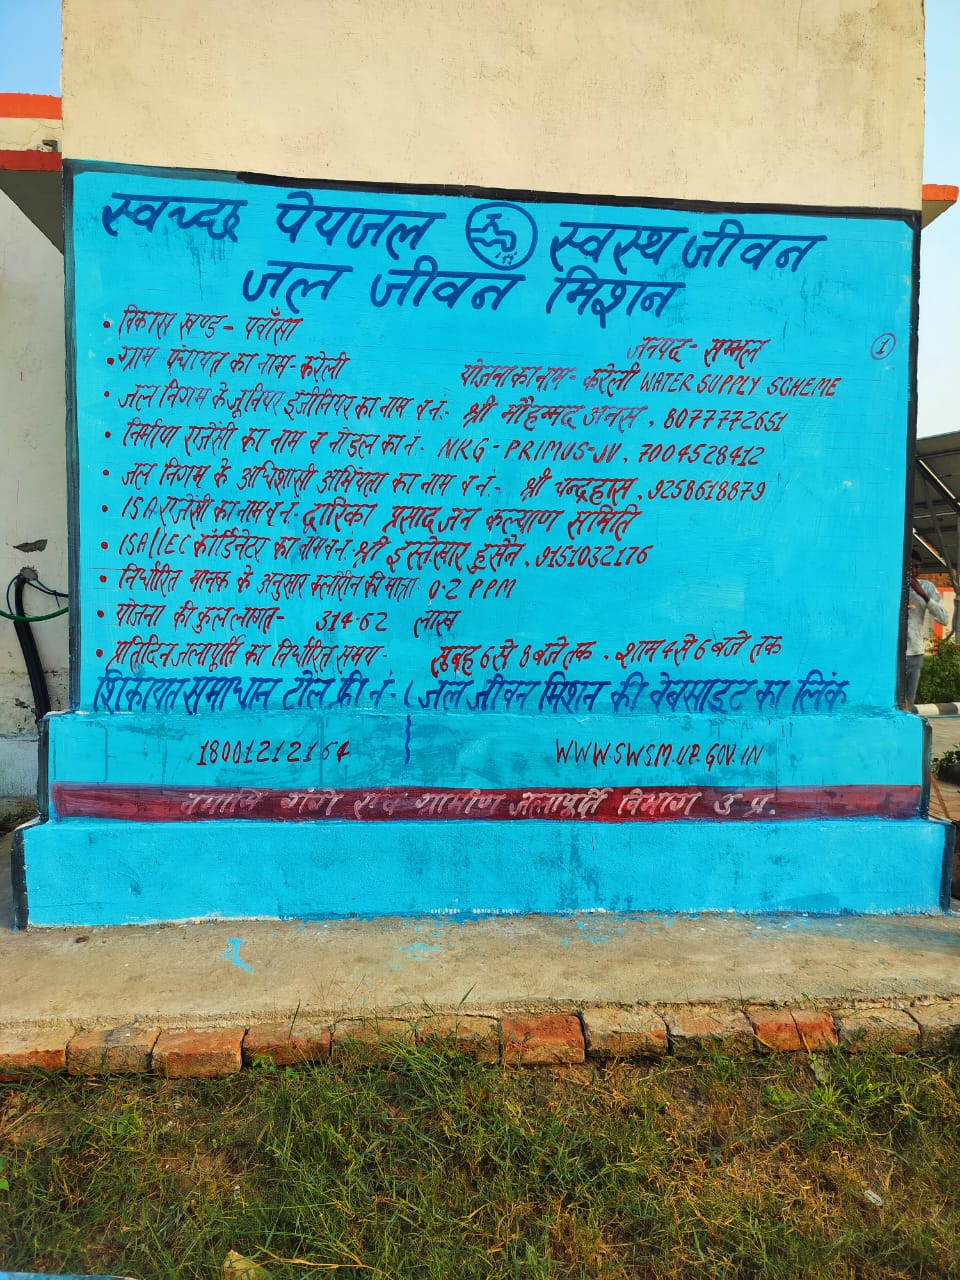 स्वच्छ पेयजल स्वस्थ जीवन
जल जीवन मिशन
• विकास खण्ड - पवाँसा जनपद - सम्भल
1
• ग्राम पंचायत का नाम - करेली योजना का नाम - करेली WATER SUPPLY SCHEME
• जल निगम के जूनियर इंजीनियर का नाम व नं:- श्री मौहम्मद अनस, 8077772651
• निर्माण एजेंसी का नाम व नोडल का नं. NKG - PRIMUS-JV, 7004528412
• जल निगम के अधिशासी अभियंता का नाम व नं:- श्री चन्द्रहास, 9258618879
• ISA एजेंसी का नाम व नं: द्वारिका प्रसाद जन कल्याण समिति
• ISA/IEC कोर्डिनेटर का नाम व नं:- श्री इस्तेखार हुसैन, 9151032176
• निर्धारित मानक के अनुसार क्लोरीन की मात्रा 0.2 PPM
• योजना की कुल लागत - 314.62 लाख
• प्रतिदिन जलापूर्ति का निर्धारित समय - सुबह 6 से 8 बजे तक, शाम 4 से 6 बजे तक
शिकायत समाधान टोल फ्री नं:- जल जीवन मिशन की वेबसाइट का लिंक
18001212164 WWW.SWSM.UP.GOV.IN
नमामि गंगे एवं ग्रामीण जलापूर्ति विभाग उ प्र.